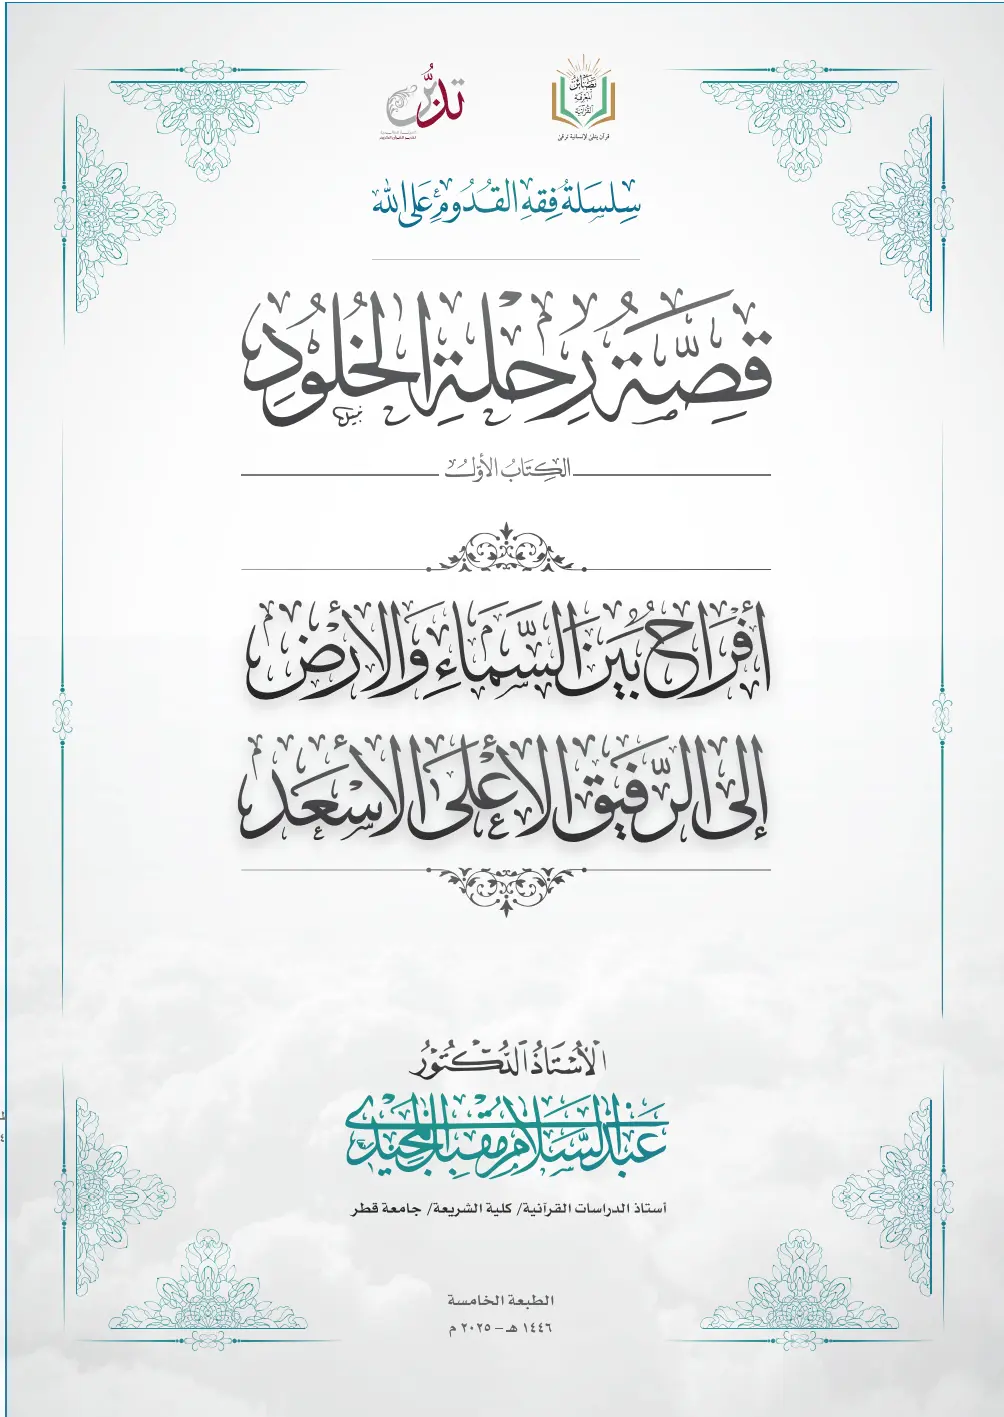 بصائر
المعرفة
القرآنية
قرآن يتلى لإنسانية ترقى
تدبر
سِلسَلةُ فِقهِ القُدُومِ عَلى الله
قِصَّةُ رِحْلةِ الخُلُودِ
الكِتَابُ الأوّلُ
أفْرَاحٌ بَيْنَ السَّمَاءِ وَالأرْضِ
إلى الرَّفيقِ الأعْلَى الأسْعَدِ
الأُسْتَاذُ الدُّكْتُورُ
عَبْدُ السَّلَام مُقْبِل المَجِيْدِي
أستاذ الدراسات القرآنية/ كلية الشريعة/ جامعة قطر
الطبعة الخامسة
١٤٤٦ هـ – ٢٠٢٥ م